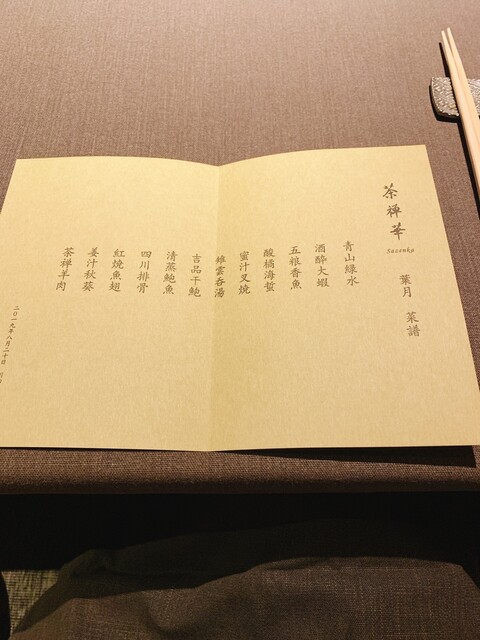 茶禅華
Sazenka
葉月 菜譜
青山緑水
酒酔大蝦
五粮香魚
酸橘海蜇
蜜汁叉焼
雉雲呑湯
吉品干鮑
清蒸鮑魚
四川排骨
紅焼魚翅
姜汁秋葵
茶禅羊肉
二〇一九年八月二十日